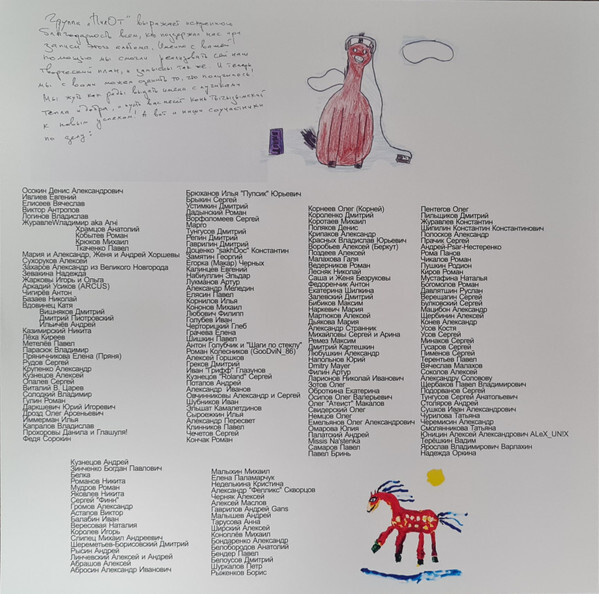 Группа „ПилОт" выражает искреннюю
благодарность всем, кто поддержал нас при
записи этого альбома. Именно с вашей
помощью мы смогли реализовать сей наш
творческий план, а записан так же. И теперь,
мы с вами можем оценить то, что получилось.
к новым успехам! А вот и наши соучастники
по делу:
Осокин Денис Александрович
Ивлиев Евгений
Елисеев Вячеслав
Виктор Антропов
Логинов Владислав
ЖуравлеWладимир aka Arni
Храмцов Анатолий
Кобытев Роман
Крюков Михаил
Ткаченко Павел
Мария и Александр, Женя и Андрей Хоршевы
Сухоруков Алексей
Захаров Александр из Великого Новгорода
Зевакина Надежда
Жарковы Игорь и Ольга
Аркадий Усиков (ARCUS)
Чигирёв Антон
Базаев Николай
Вдовинец Катя
Вишняков Дмитрий
Дмитрий Пиотровский
Ильичёв Андрей
Казимирский Никита
Лёха Киреев
Метелёв Павел
Тарасюк Владимир
Пряничникова Елена (Пряня)
Рудов Сергей
Крупенко Александр
Кузнецов Алексей
Опалев Сергей
Виталий В. Царев
Солодкий Владимир
Гулин Роман
Дарюшевич Юрий Игоревич
Дрозд Олег Арсеньевич
Иммерман Илья
Капралов Владислав
Прохоровы Данила и Глашуля!
Федя Сорокин
Брюханов Илья "Пупсик" Юрьевич
Брыкин Сергей
Устимкин Дмитрий
Дадынский Роман
Ворфоломеев Сергей
Марго
Тунгусов Дмитрий
Репин Дмитрий
Гаврилин Дмитрий
Доценко "sakhDoc" Константин
Замятин Георгий
Егорка (Макар) Черных
Калинцев Евгений
Габиуллин Эльдар
Лукманов Артур
Александр Меледин
Елясин Павел
Корнилов Илья
Кононов Михаил
Любович Филипп
Голубев Иван
Черторицкий Глеб
Грачева Елена
Шишкин Павел
Антон Голубчик и "Шаги по стеклу"
Роман Колесников (GooDviN_86)
Алексей Горшков
Греков Дмитрий
Иван "Грифф" Глазунов
Кузнецов "Roland" Сергей
Потапов Андрей
Александр Иванов
Овчинниковы Александр и Сергей
Шубников Иван
Эльшат Камалетдинов
Сыроежкин Илья
Александр Пересвет
Клинников Павел
Чечетов Сергей
Кончак Роман
Корнеев Олег (Корней)
Короленко Дмитрий
Коротаев Михаил
Поляков Денис
Крипаков Александр
Красных Владислав Юрьевич
Воробьев Алексей (Беркут)
Поздеев Алексей
Малахова Галя
Ведерников Роман
Лесняк Николай
Саша и Женя Безруковы
Федоренчик Антон
Екатерина Шилкина
Залевский Дмитрий
Бибиков Максим
Наркевич Мария
Мартюков Алексей
Дьякова Мария
Александр Странник
Михайловы Сергей и Арина
Ремез Максим
Дмитрий Картешкин
Любушкин Александр
Напольнов Юрий
Dmitry Mayer
Филин Артур
Ларионов Николай Иванович
Зотов Олег
Оброткина Екатерина
Осипов Олег Валерьевич
Олег "Атеист" Макалов
Свидерский Олег
Немцов Олег
Емельянов Олег Александрович
Омарова Юлия
Палатский Андрей
Missis Na'stenka
Самаров Павел
Павел Бринь
Пентегов Олег
Пильщиков Дмитрий
Журавлев Константин
Ципилин Константин Константинович
Голосков Александр
Прачик Сергей
Андрей-Раалнестеренко
Рома Панов
Чикалов Роман
Пушкин Родион
Киров Роман
Мустафина Наталья
Богомолов Роман
Давлятшин Руслан
Верещагин Сергей
Булковский Сергей
Мацибон Александр
Щербинин Алексей
Конев Александр
Усов Костя
Усов Сергей
Минаков Сергей
Гусаров Сергей
Пименов Сергей
Терентьев Павел
Вячеслав Малахов
Соколов Алексей
Александру Солохову
Щербаков Павел Владимирович
Подорванов Сергей
Тунгусов Сергей Анатольевич
Столяров Андрей
Сушков Иван Александрович
Чурилова Татьяна
Черемисин Александр
Смолянникова Татьяна
Юницин Алексей Александрович ALeX_UN!X
Терёшкин Вадим
Ярослав Владимирович Варлахин
Надежда Оркина
Кузнецов Андрей
Зинченко Богдан Павлович
Белка
Романов Никита
Мудров Роман
Яковлев Никита
Сергей "Финн"
Громов Александр
Астапов Виктор
Балабин Иван
Вересовая Наталия
Королев Игорь
Слипец Михаил Андреевич
Шереметьев-Борисовский Дмитрий
Рысин Андрей
Линчевский Алексей и Андрей
Абрашов Алексей
Абросин Александр Иванович
Малыхин Михаил
Елена Паламарчук
Неделькина Кристина
Александр "Феликс" Скворцов
Черняк Алексей
Алексей Маслов
Гаврилов Андрей Gans
Малышев Андрей
Тарусова Анна
Ширский Алексей
Коноплёв Михаил
Бондаренко Александр
Белобородов Анатолий
Бендер Павел
Белоусов Дмитрий
Шуркалов Петр
Рыженков Борис